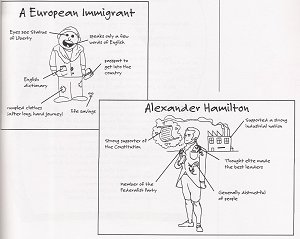 A European Immigrant
Eyes see Statue
of Liberty
speaks only a few
words of English
passport to
get into the
country
English
dictionary
rumpled clothes
(after long, hard journey)
life savings
Alexander Hamilton
Supported a strong
industrial nation
Strong supporter of
the Constitution
Thought elite made
the best leaders
member of the
Federalist Party
Generally distrustful
of people